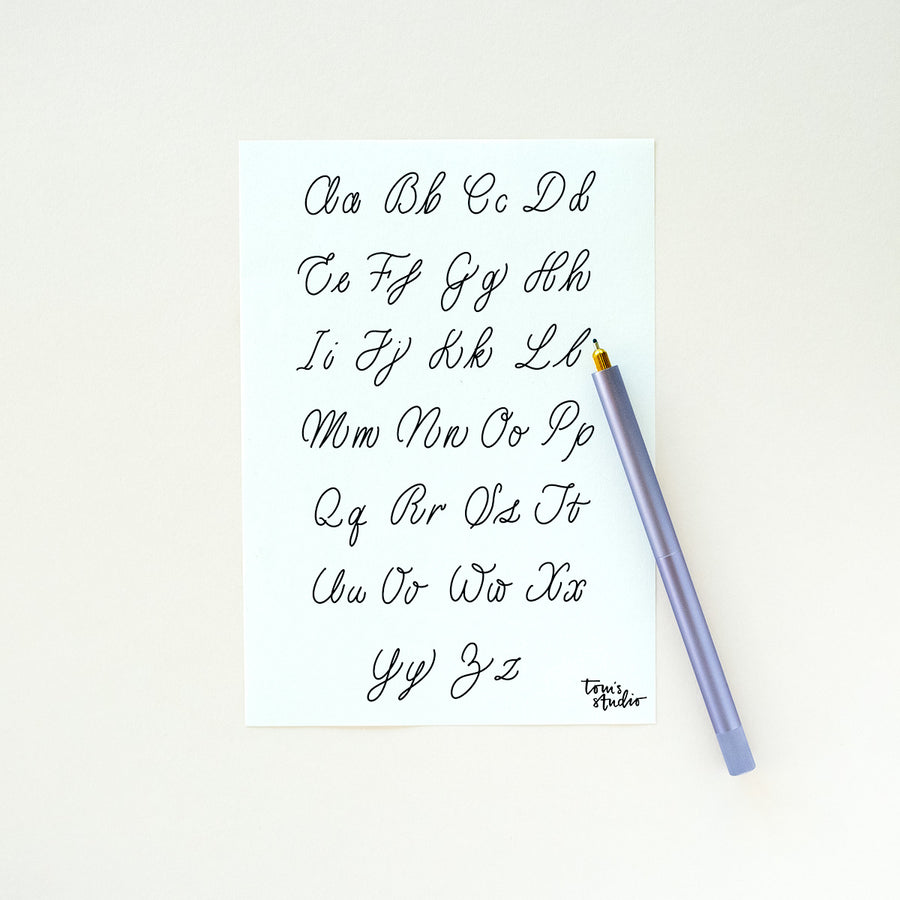 Aa Bb Cc Dd
Ee Ff Gg Hh
Ii Jj Kk Ll
Mm Nn Oo Pp
Qq Rr Ss Tt
Uu Vv Ww Xx
Yy Zz
tom's
studio